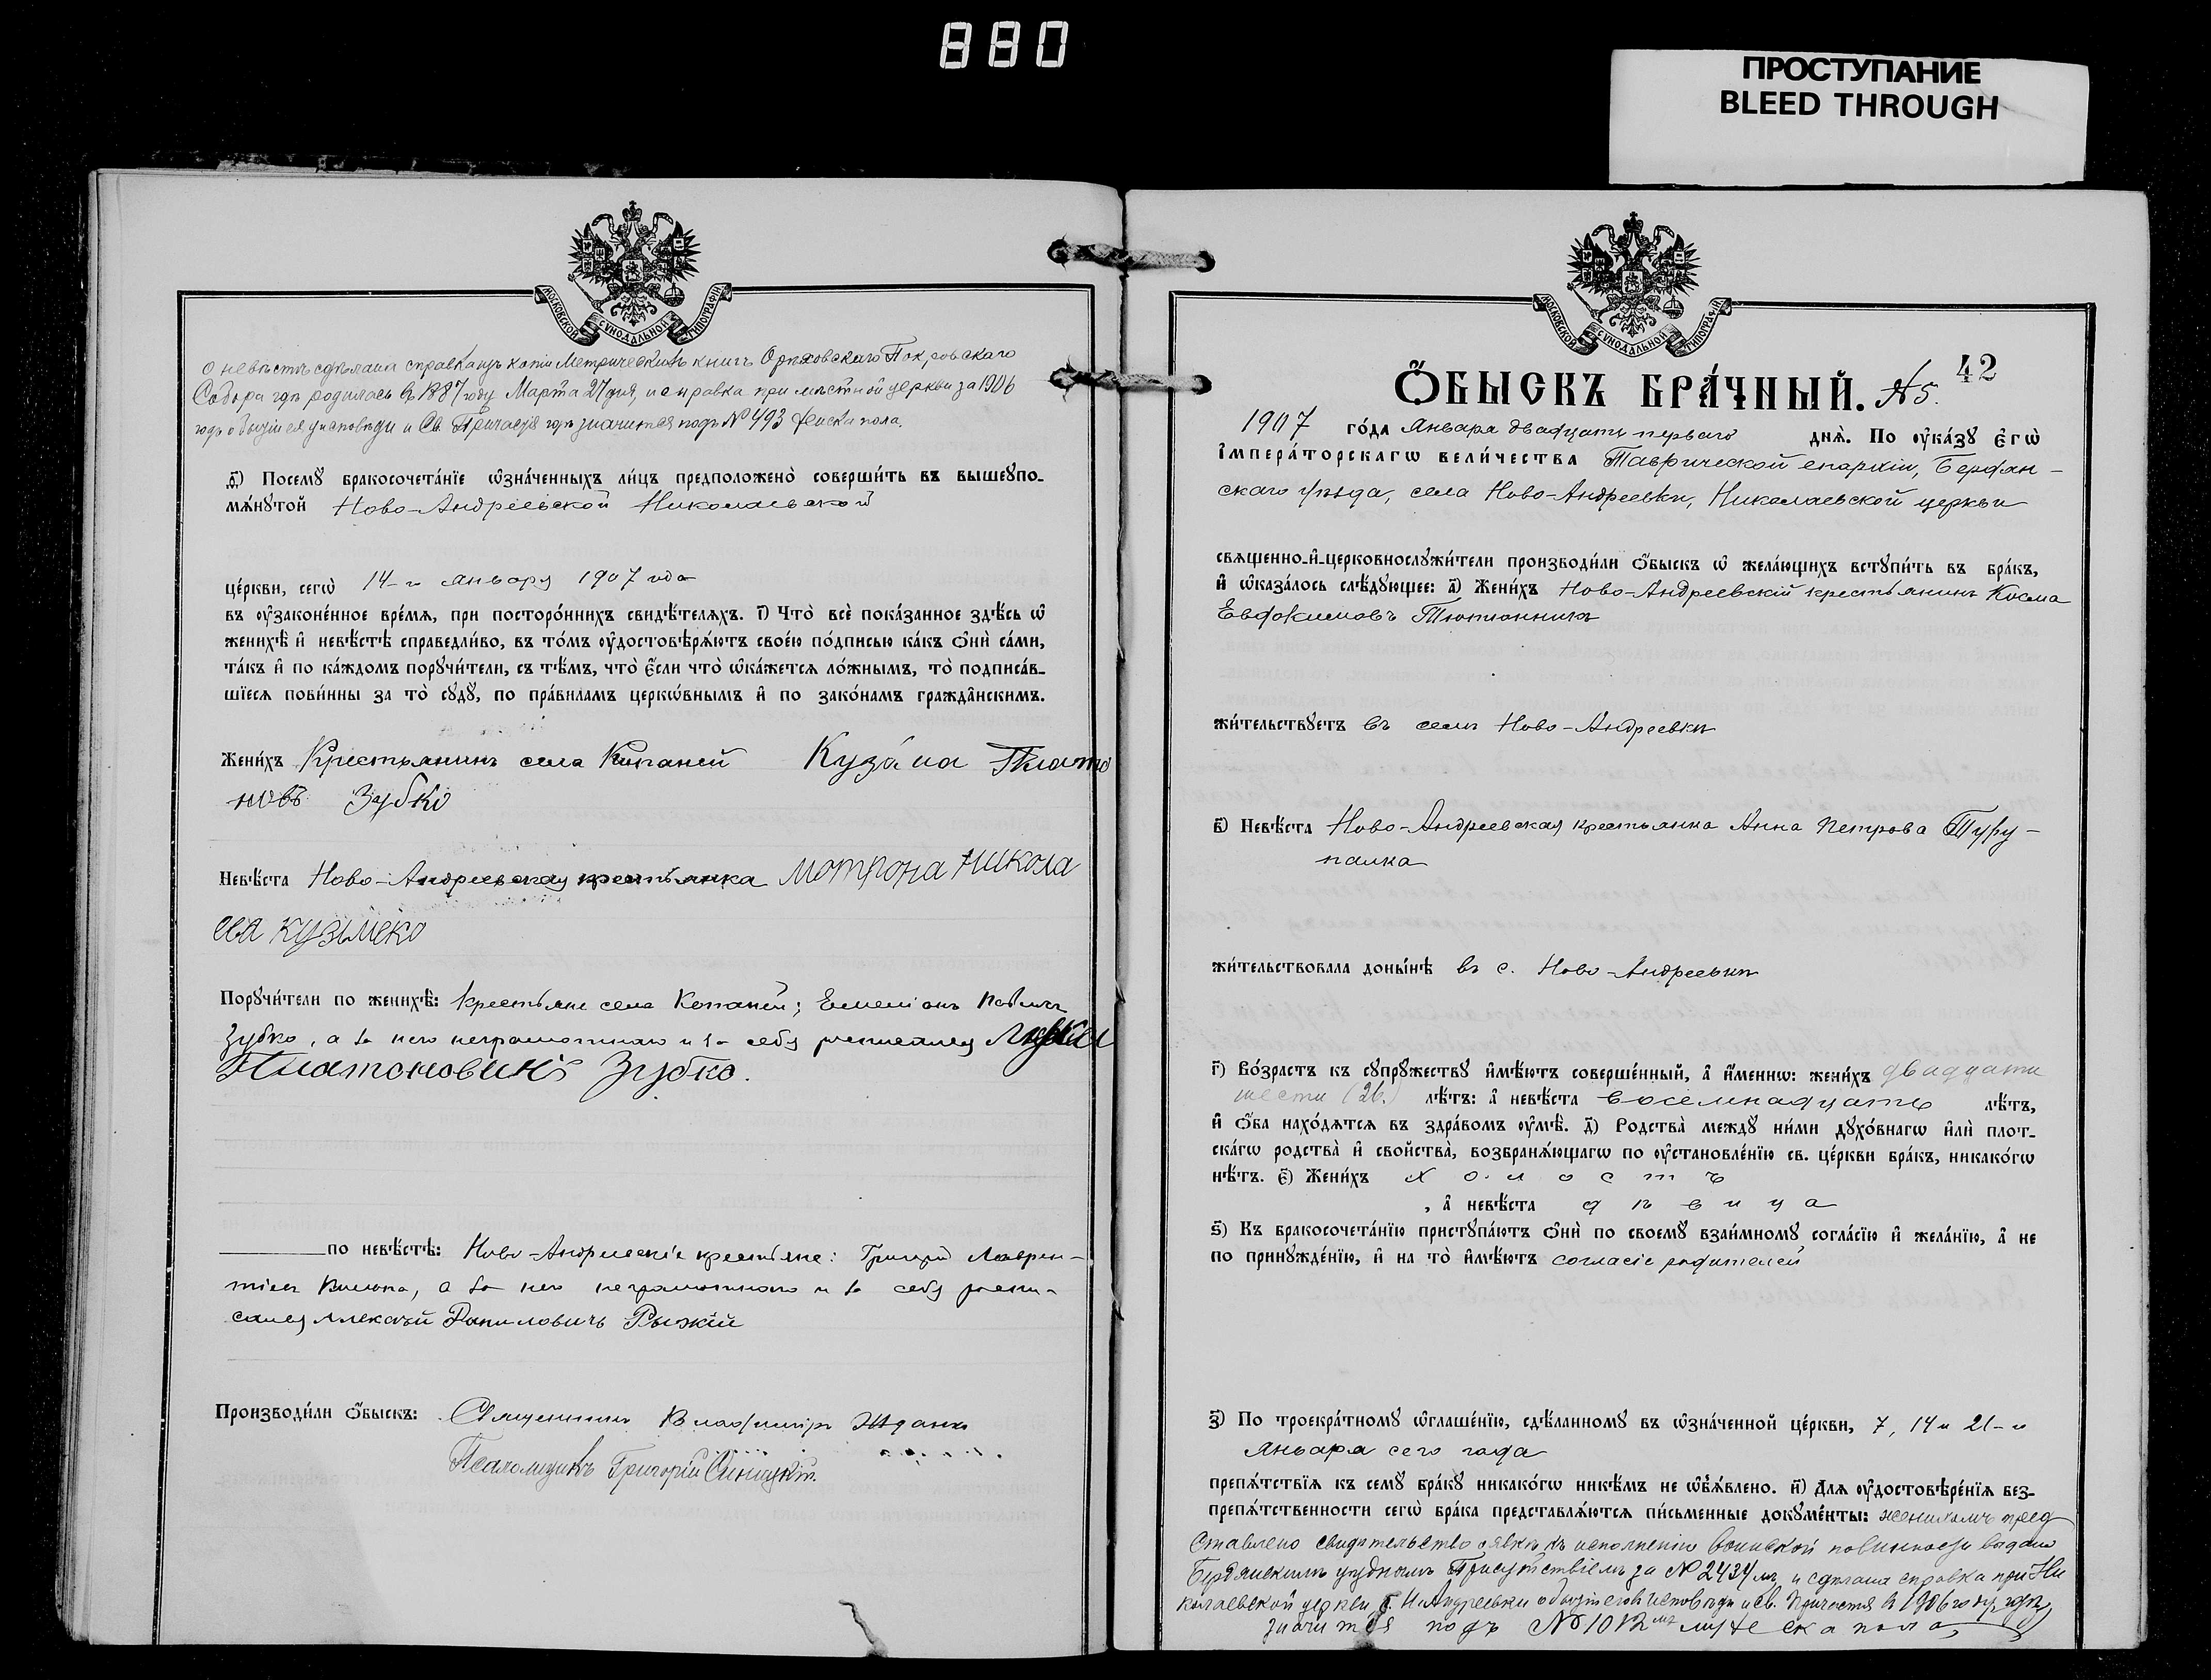 880
ПРОСТУПАНИЕ
BLEED THROUGH
МОСКОВСКОЙ СѴНОДАЛЬНОЙ ТИПОГРАФІИ
о невѣстѣ сдѣлана справка въ копіи Метрическихъ книгъ Орѣховскаго Покровскаго
Собора гдѣ родилась въ 1887 году Марта 27 дня, и справка при мѣстной церкви за 1906
годъ о бытіи ея у исповѣди и Св. Причастія гдѣ значится подъ № 493 женска пола.
д҃) Посемꙋ бракосочета́нїе ѡ҆зна́ченныхъ ли́цъ предположено̀ соверши́ть въ вышеꙋпо-
мѧ́нꙋтой Ново-Андреевской Николаевской
це́ркви, сегѡ̀ 14-го января 1907 года
въ ᲂу҆законе́нное вре́мѧ, при посторо́ннихъ свидѣ́телѧхъ. і҃) Что̀ всѐ пока́занное здѣ́сь ѡ҆
женихѣ̀ и҆ невѣ́стѣ справедли́во, въ то́мъ ᲂу҆достовѣрѧ́ютъ свое́ю по́дписью ка́къ ѻ҆нѝ са́ми,
та́къ и҆ по ка́ждомъ порꙋчи́тели, съ тѣ́мъ, что̀ є҆́сли что̀ ѡ҆ка́жетсѧ ло́жнымъ, то̀ подписа́в-
шїесѧ пови́нны за то̀ сꙋдꙋ̀, по пра́виламъ церкѡ́внымъ и҆ по зако́намъ гражда̑нскимъ.
Жени́хъ Крестьянинъ села Копаней Кузма Плато
новъ Зубко
Невѣ́ста Ново-Андреевская крестьянка мотрона Никола
ева кузьмеко
Порꙋчи́тели по женихѣ̀: крестьяне села Копаней; Емеліанъ
Зубко, а за него неграмотнаго и за себя росписался
Платоновичъ Зубко.
по невѣ́стѣ: Ново-Андреевскіе крестьяне: Григорій Лаврен-
тіевъ а за него неграмотнаго и за себя роспи-
сался Алексѣй Даниловичъ Рыжій
Производи́ли ѻ҆́быскъ: Священникъ Владиміръ Жданъ
Псаломщикъ Григорій Синицкій.
МОСКОВСКОЙ СѴНОДАЛЬНОЙ ТИПОГРАФІИ
42
Ѻ҆́БЫСКЪ БРА́ЧНЫЙ. № 5.
1907 го́да Января двадцать перваго днѧ̀. По ᲂу҆ка́зꙋ є҆гѡ̀
і҆мпера́торскагѡ вели́чества Таврической епархіи, Бердян-
скаго уѣзда, села Ново-Андреевки, Николаевской церкви
свѧщенно-и҆-церковнослꙋжи́тели производи́ли ѻ҆́быскъ ѡ҆ жела́ющихъ встꙋпи́ть въ бра́къ,
и҆ ѡ҆каза́лось слѣ́дꙋющее: а҃) Жени́хъ Ново-Андреевскій крестьянинъ Косма
Евфокимовъ Тютюнникъ
жи́тельствꙋетъ въ селѣ Ново-Андреевкѣ
в҃) Невѣ́ста Ново-Андреевская крестьянка Анна Петрова Туру-
палка
жи́тельствовала доны́нѣ въ с. Ново-Андреевкѣ
г҃) Во́зрастъ къ сꙋпрꙋ́жествꙋ и҆мѣ́ютъ соверше́нный, а҆ и҆́меннѡ: жени́хъ двадцати
шести (26.) лѣ́тъ: а҆ невѣ́ста восемнадцать лѣ́тъ,
и҆ ѻ҆́ба нахо́дѧтсѧ въ здра́вомъ ᲂу҆мѣ̀. д҃) Родства̀ междꙋ̀ ни́ми дꙋхо́внагѡ и҆лѝ плот-
ска́гѡ родства̀ и҆ сво́йства̀, возбранѧ́ющагѡ по ᲂу҆становле́нїю св. це́ркви бра́къ, никако́гѡ
нѣ́тъ. є҃) Жени́хъ холостъ
, а҆ невѣ́ста дѣвица
ѕ҃) Къ бракосочета́нїю пристꙋпа́ютъ ѻ҆нѝ по своемꙋ̀ взаи́мномꙋ согла́сїю и҆ жела́нїю, а҆ не
по принꙋжде́нїю, и҆ на то̀ и҆мѣ́ютъ согласіе родителей
з҃) По троекра́тномꙋ ѡ҆глаше́нїю, сдѣ́ланномꙋ въ ѡ҆зна́ченной це́ркви, 7, 14 и 21-го
Января сего года
препѧ́тствїѧ къ семꙋ̀ бра́кꙋ никако́гѡ никѣ́мъ не ѡ҆б̾ѧ́влено. и҃) Длѧ ᲂу҆достовѣре́нїѧ без-
препѧ́тственности сегѡ̀ бра́ка представлѧ́ютсѧ пи́сьменные докꙋме́нты: женихомъ пред
ставлено свидѣтельство о явкѣ къ исполненію воинской повинности выдано
Бердянскимъ уѣзднымъ Присутствіемъ за № 2434мъ, и сдѣлана справка при Ни
колаевской церкви с. Н.Андреевки о бытіи его въ исповѣди и св. Причастія въ 1906 году, гдѣ
значится подъ № 1012мъ мужеска пола,